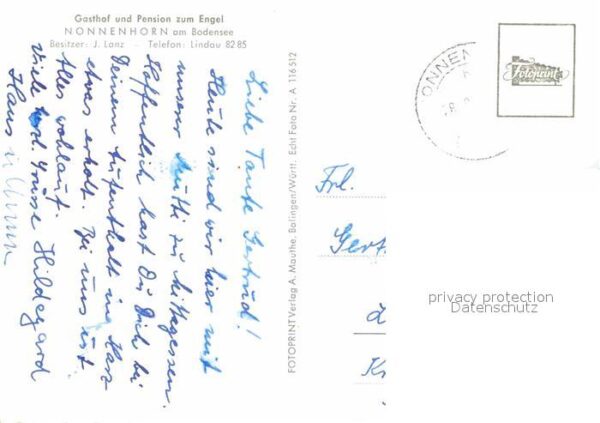 Gasthof und Pension zum Engel
NONNENHORN am Bodensee
Besitzer: J. Lanz - Telefon: Lindau 82 85
Liebe Tante Gertrud!
Heute sind wir hier mit
unserer Mutti zu Mittagessen.
Hoffentlich hast Du Dich bei
Deinem Aufenthalt im Harz
etwas erholt. Bei uns ist
Alles wohlauf.
Viele herzl. Grüsse Hildegard
Hans u.
FOTOPRINT Verlag A. Mauthe, Balingen/Württ. Echt Foto Nr. A 116512
ONNEN
Fotoprint
Frl.
Gert
privacy protection
Datenschutz